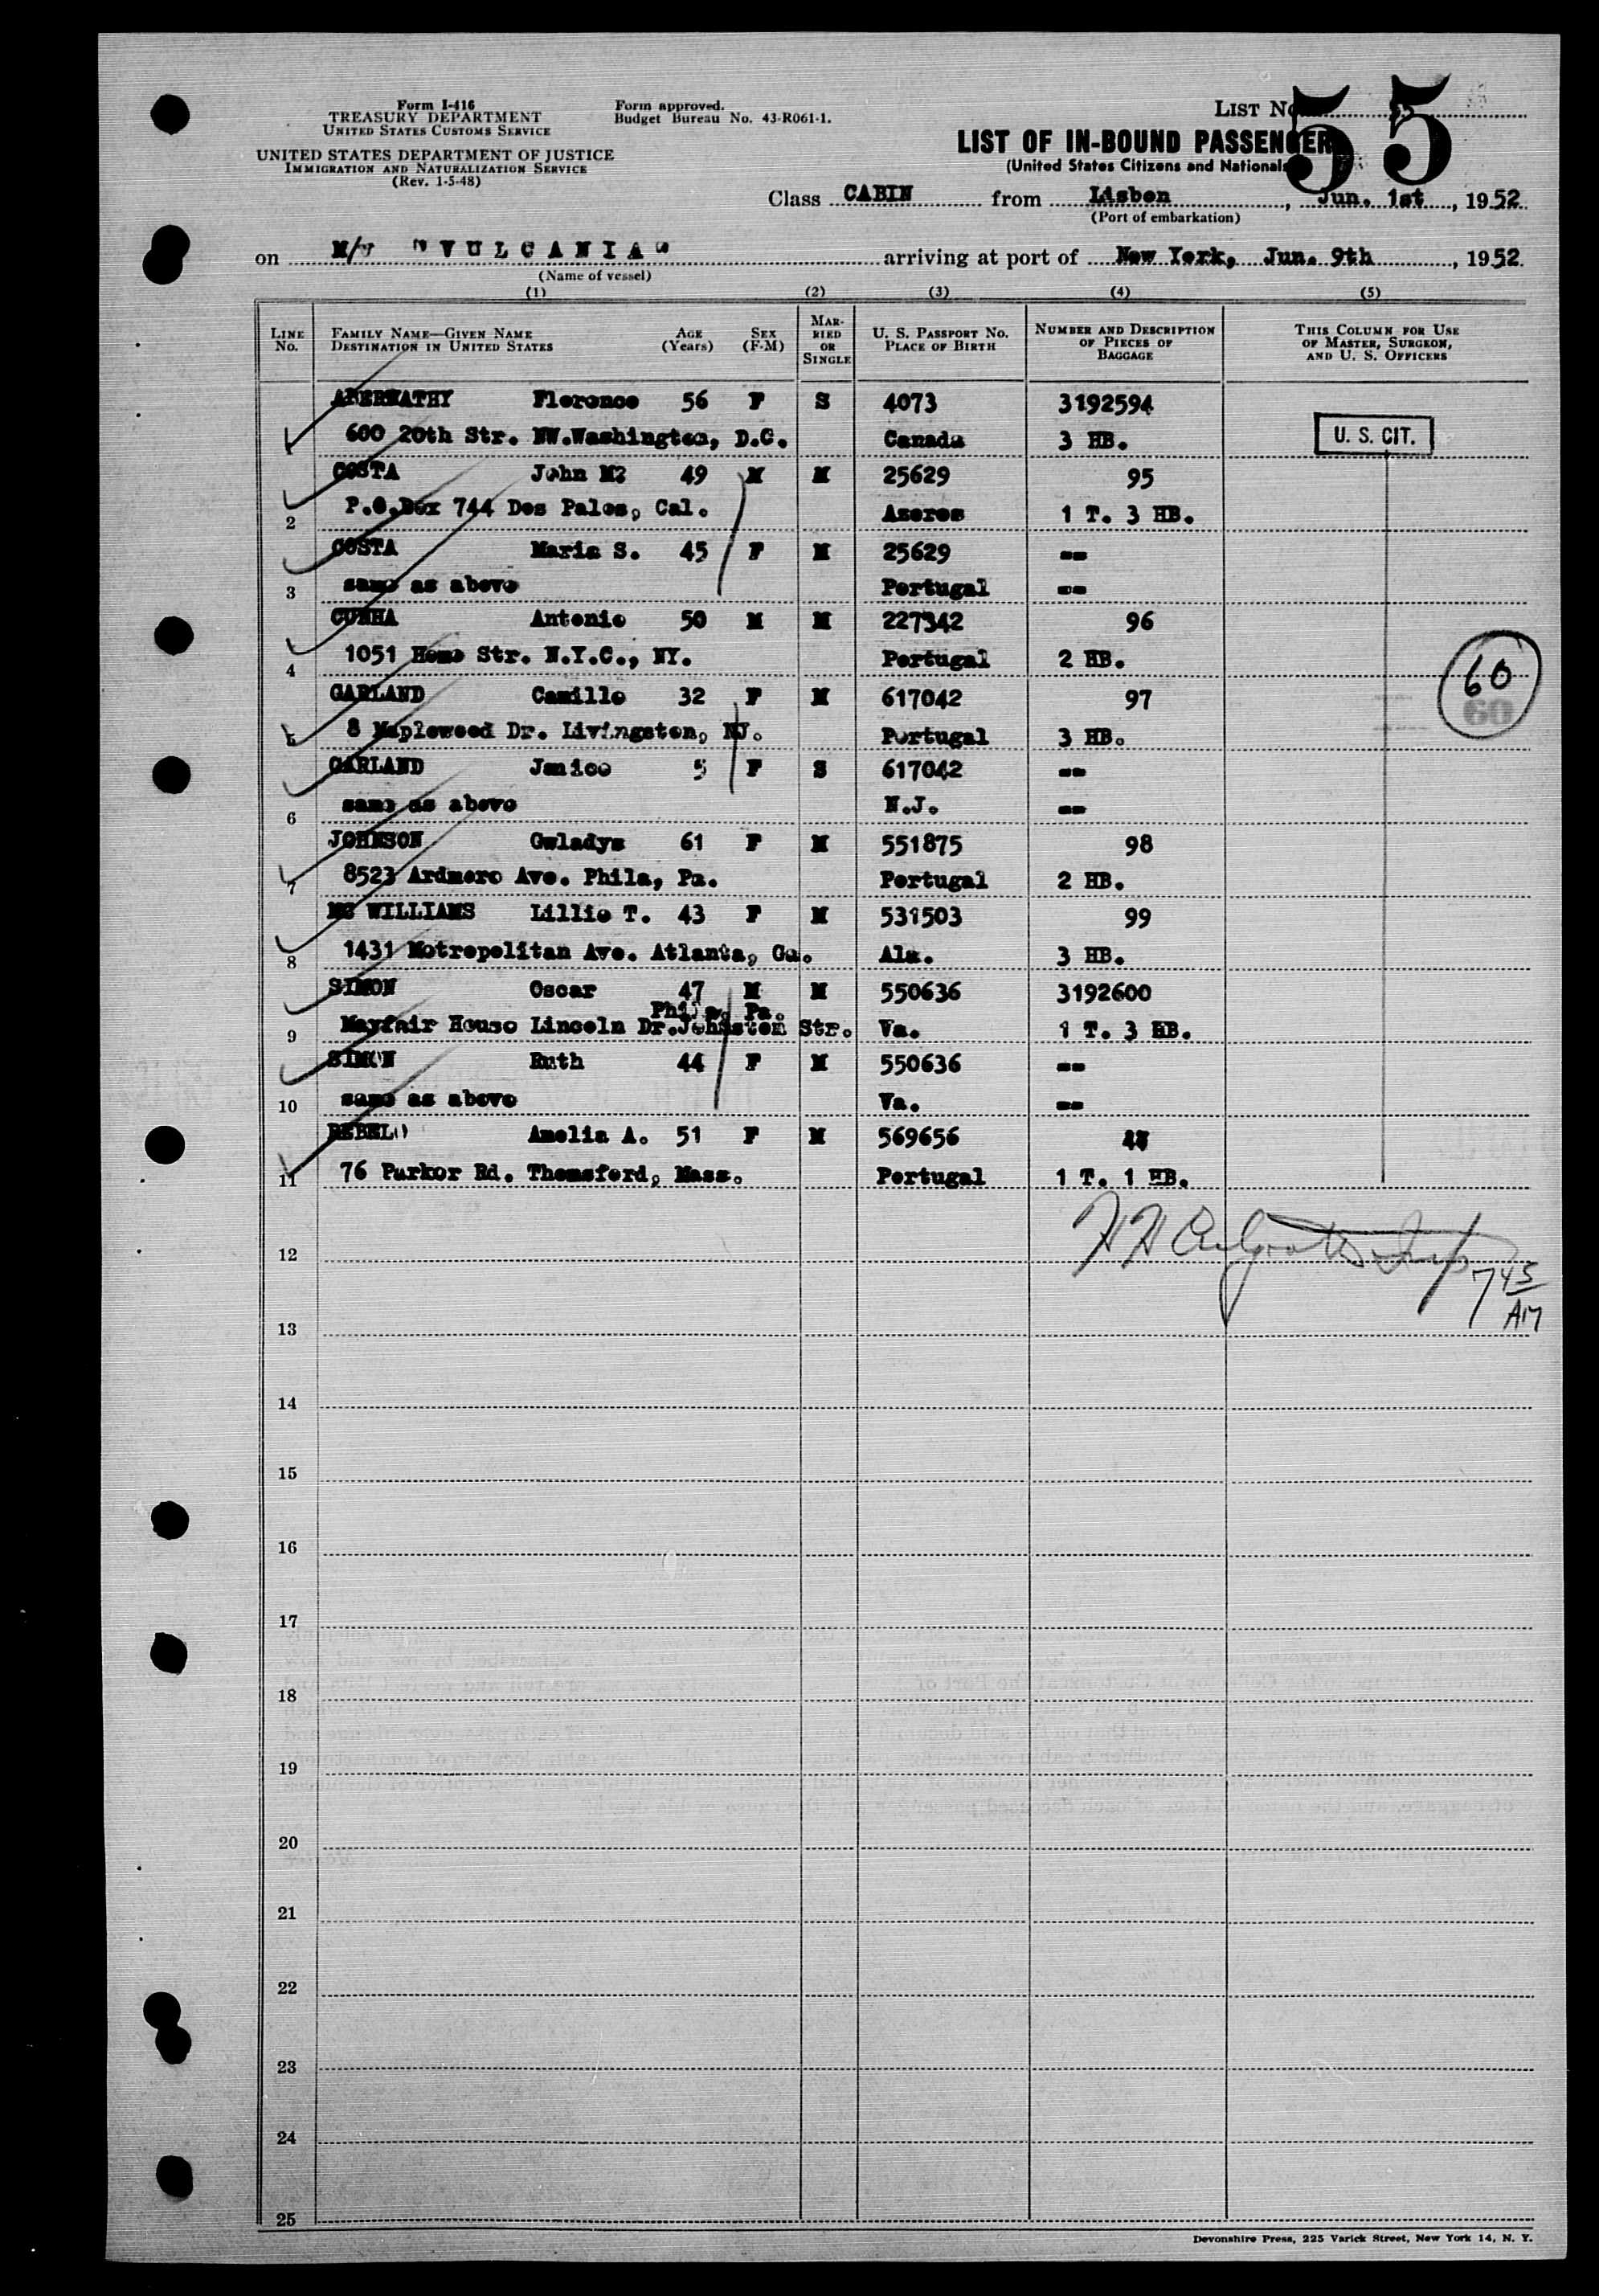 Form I-416
TREASURY DEPARTMENT
UNITED STATES CUSTOMS SERVICE
UNITED STATES DEPARTMENT OF JUSTICE
IMMIGRATION AND NATURALIZATION SERVICE
(Rev. 1-5-48)
Form approved.
Budget Bureau No. 43-R061-1.
LIST No. 55
LIST OF IN-BOUND PASSENGER
(United States Citizens and Nationals
Class CABIN from Lisbon, Jun. 1st, 1952
(Port of embarkation)
on M/V "VULCANIA" arriving at port of New York, Jun. 9th, 1952
(Name of vessel)
(1) (2) (3) (4) (5)
LINE No. FAMILY NAME—GIVEN NAME DESTINATION IN UNITED STATES AGE (Years) SEX (F-M) MARRIED OR SINGLE U. S. PASSPORT NO. PLACE OF BIRTH NUMBER AND DESCRIPTION OF PIECES OF BAGGAGE THIS COLUMN FOR USE OF MASTER, SURGEON, AND U. S. OFFICERS
ABERNATHY Florence 56 F S 4073 3192594
600 20th Str. NW.Washington, D.C. Canada 3 HB. U. S. CIT.
COSTA John M. 49 M M 25629 95
2 P.O.Box 744 Dos Palos, Cal. Azores 1 T. 3 HB.
COSTA Maria S. 45 F M 25629 --
3 same as above Portugal --
CUNHA Antonio 50 M M 227342 96
4 1051 Home Str. N.Y.C., NY. Portugal 2 HB.
60
60
GARLAND Camille 32 F M 617042 97
5 8 Maplewood Dr. Livingston, NJ. Portugal 3 HB.
GARLAND Janice 5 F S 617042 --
6 same as above N.J. --
JOHNSON Gwladys 61 F M 551875 98
7 8523 Ardmore Ave. Phila, Pa. Portugal 2 HB.
MC WILLIAMS Lillie T. 43 F M 531503 99
8 1431 Metropolitan Ave. Atlanta, Ga. Ala. 3 HB.
SIMON Oscar 47 M M 550636 3192600
Phila. Pa.
9 Mayfair House Lincoln Dr.Johnston Str. Va. 1 T. 3 HB.
SIMON Ruth 44 F M 550636 --
10 same as above Va. --
REBELO Amelia A. 51 F M 569656
11 76 Parker Rd. Themsford, Mass. Portugal 1 T. 1 HB.
12
7 45
AM
13
14
15
16
17
18
19
20
21
22
23
24
25
Devonshire Press, 225 Varick Street, New York 14, N. Y.